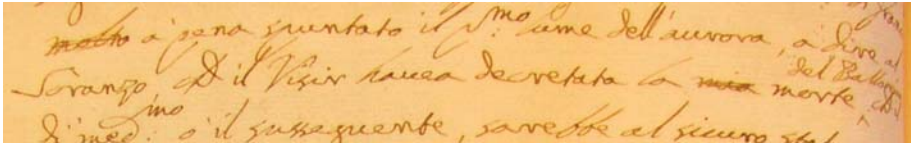 molto à pena spuntato il p.mo lume dell'aurora, à dire al
Soranzo, che il Visir hauea decretata la mia morte del Ballarin
di med.mo o' il susseguente, sarebbe al sicuro